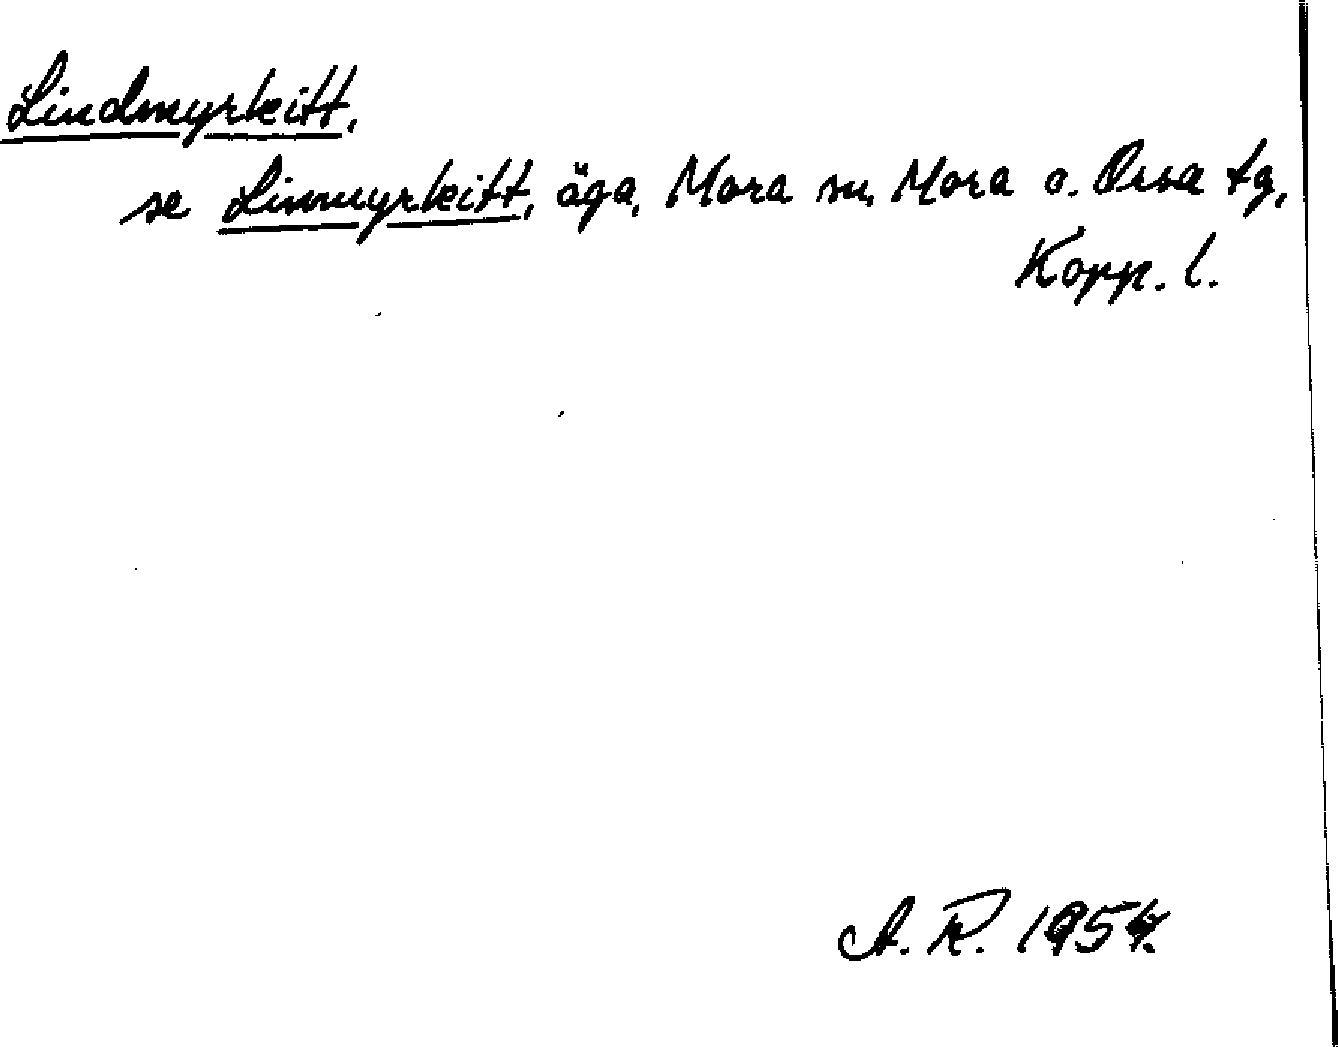 Lindmyrkitt,
se Linmyrkitt, äga, Mora sn, Mora o. Orsa tg,
Kopp. l.
A. R. 1954.